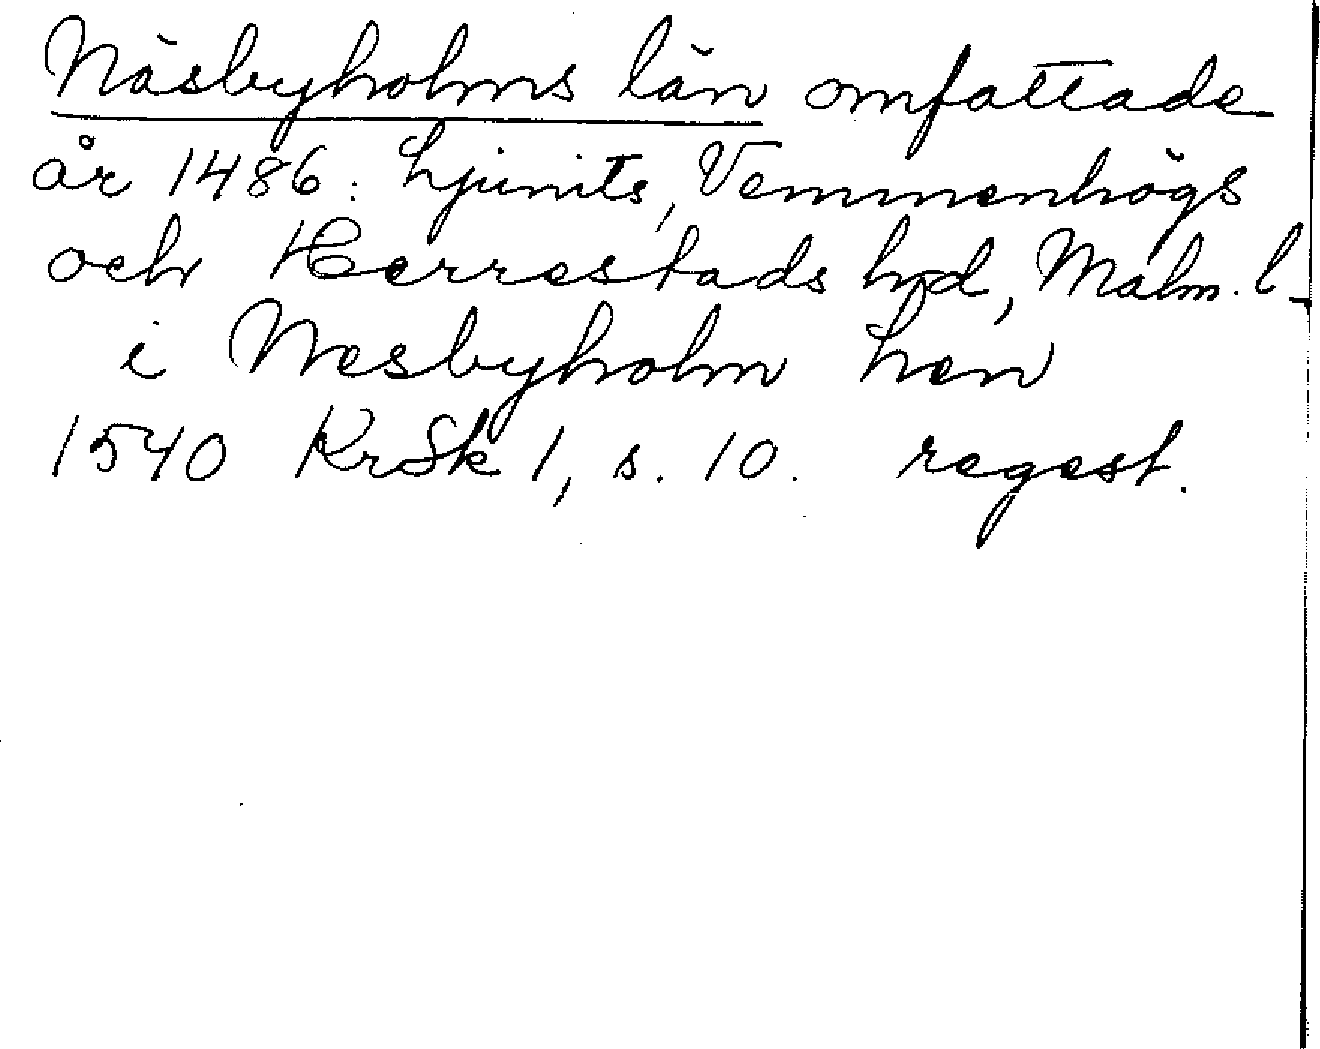 Näsbyholms län omfattade
år 1486: Ljunits, Vemmenhögs
och Herrestads hd, Malm. l.
i Nesbyholm Len
1540 KrSk 1, s. 10. regest.